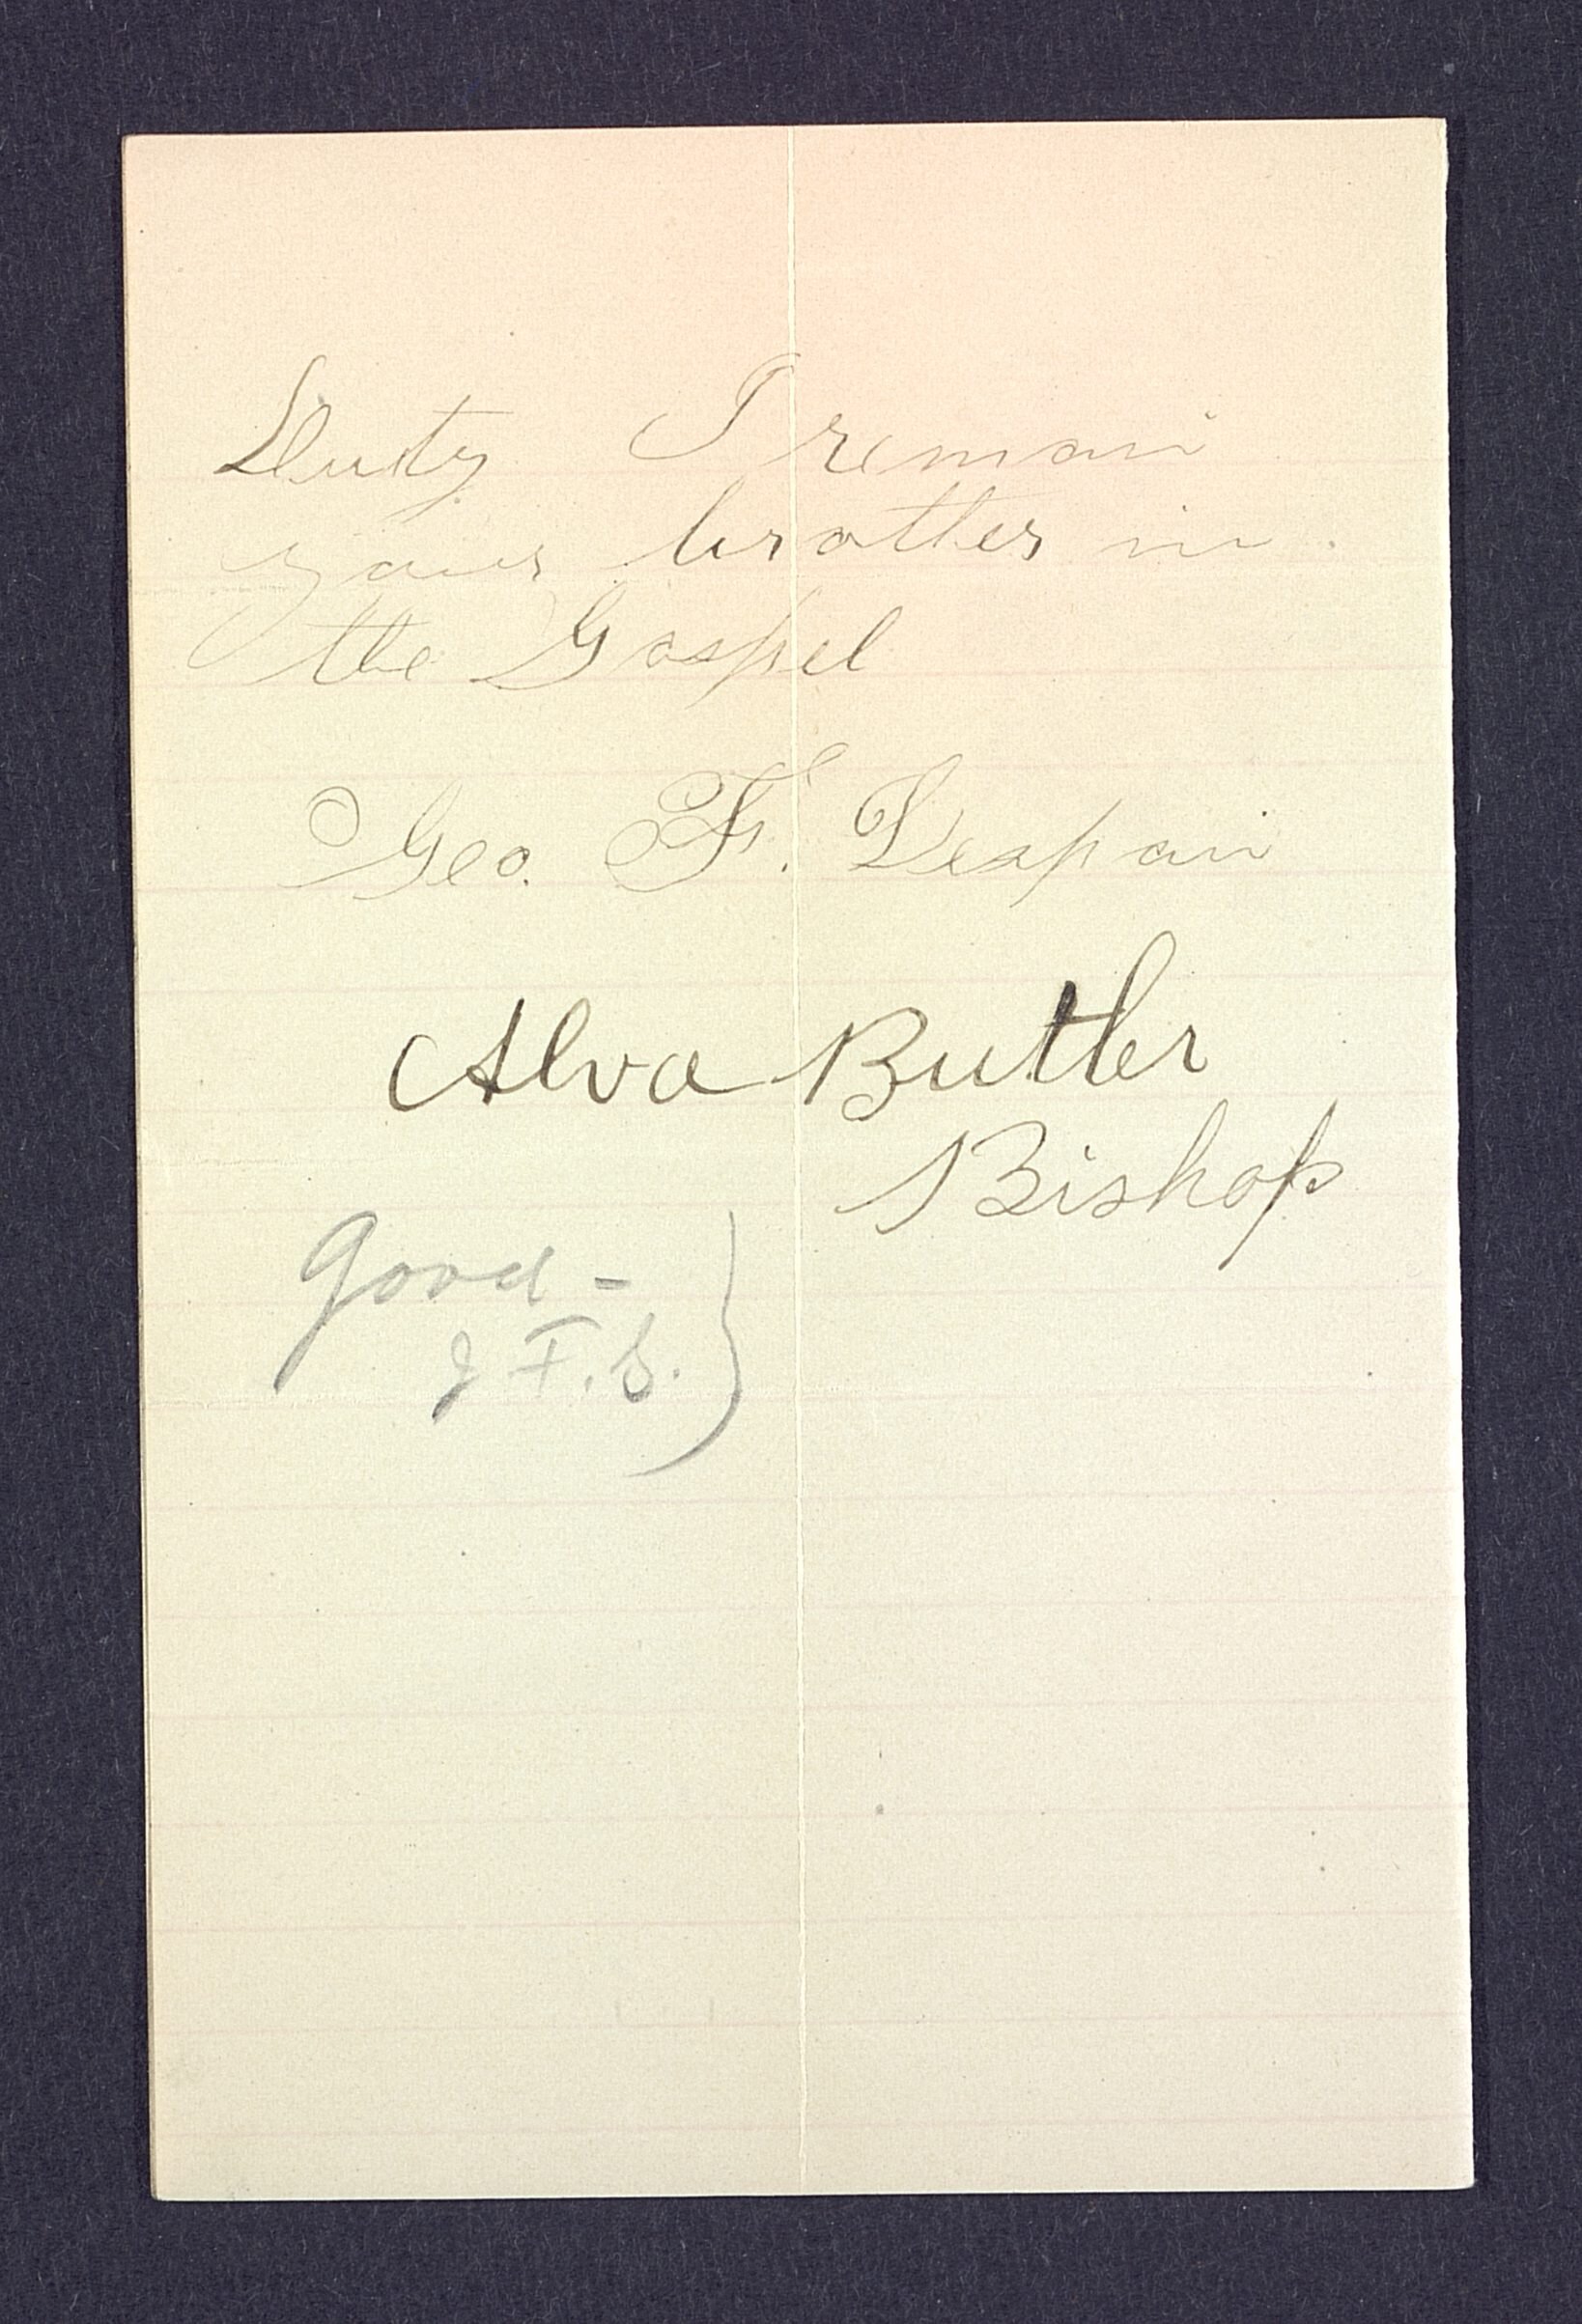 Duty I remain
your brother in
the Gospel
Geo. F. Despain
Alva Butler
Bishop
Good -
J F. S.